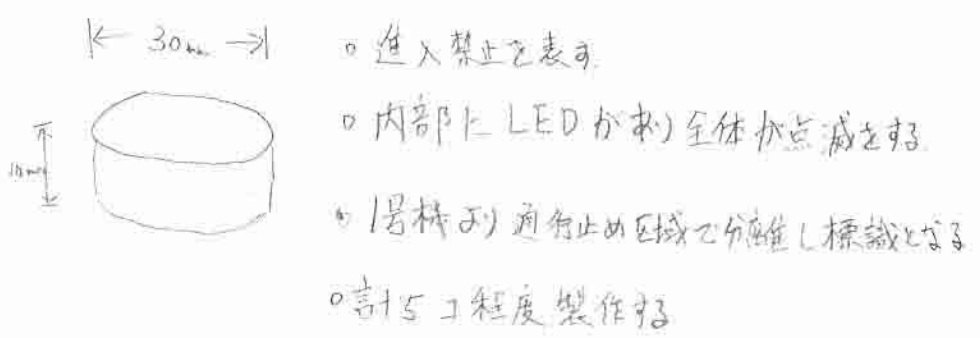 30mm
○ 進入禁止を表す.
○ 内部にLEDがあり全体が点滅をする.
○ 1号機より通行止め区域で分離し標識となる
○ 計5コ程度製作する